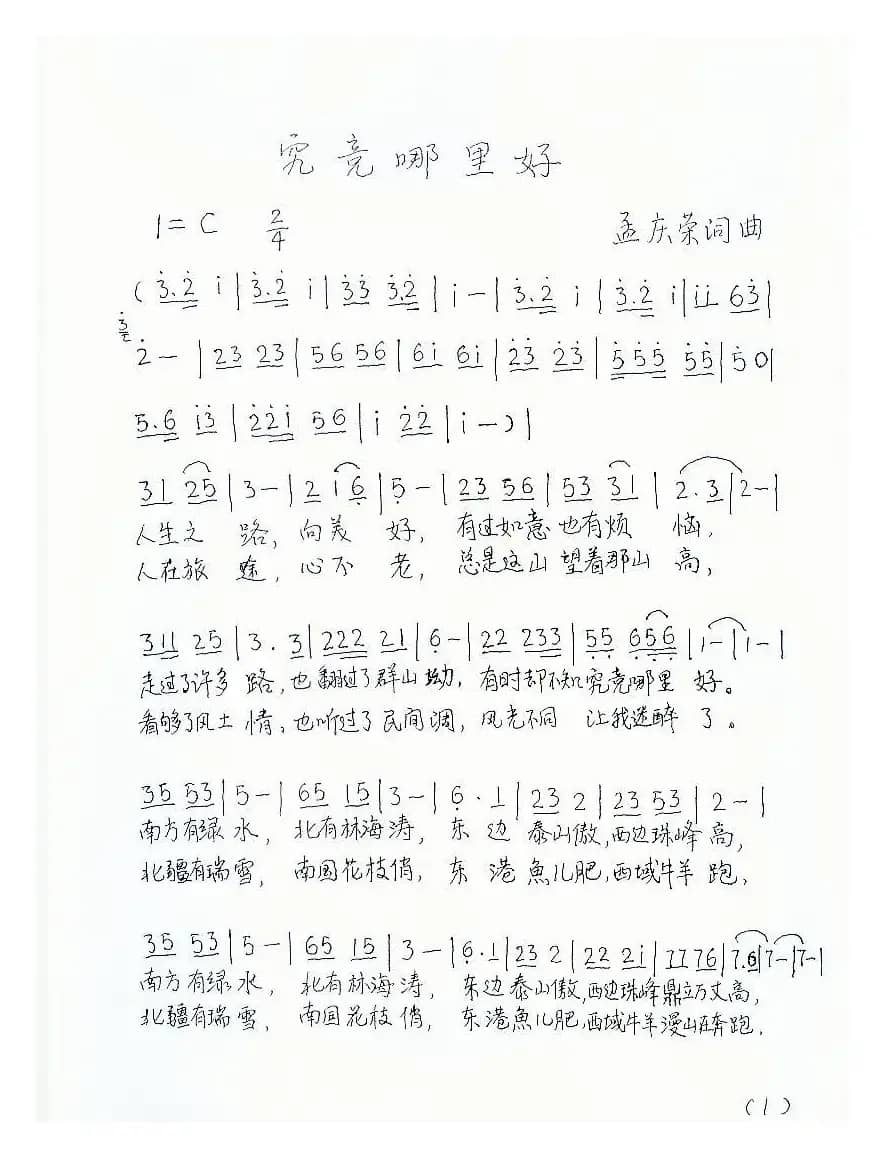 究竟哪里好
1=C 2/4 孟庆荣词曲
(3̇.2̇ i|3̇.2̇ i|3̇3̇ 3̇.2̇|i-|3̇.2̇ i|3̇.2̇ i|ii 63̇|
3̇ 2̇-|23 23|56 56|6i 6i|2̇3̇ 2̇3̇|5̇5̇5̇ 5̇5̇|5̇0|
5.6 i3̇|2̇2̇i 56|i 2̇2̇|i-)|
31 25|3-|2 16̣|5̣-|23 56|53 31|2.3|2-|
人生之路，向美好，有过如意也有烦恼，
人在旅途，心不老，总是这山望着那山高，
311 25|3.3|222 21|6̣-|22 233|5̣5̣ 6̣5̣6̣|1-|1-|
走过了许多路，也翻过了群山坳，有时却不知究竟哪里好。
看够了风土情，也听过了民间调，风光不同让我迷醉了。
35 53|5-|65 15|3-|6̣.1|23 2|23 53|2-|
南方有绿水，北有林海涛，东边泰山傲，西边珠峰高，
北疆有瑞雪，南国花枝俏，东港魚儿肥，西域牛羊跑，
35 53|5-|65 15|3-|6̣.1|23 2|22 2i|77 76|7.6|7-|7-|
南方有绿水，北有林海涛，东边泰山傲，西边珠峰鼎立万丈高，
北疆有瑞雪，南国花枝俏，东港魚儿肥，西域牛羊漫山在奔跑．
(1)